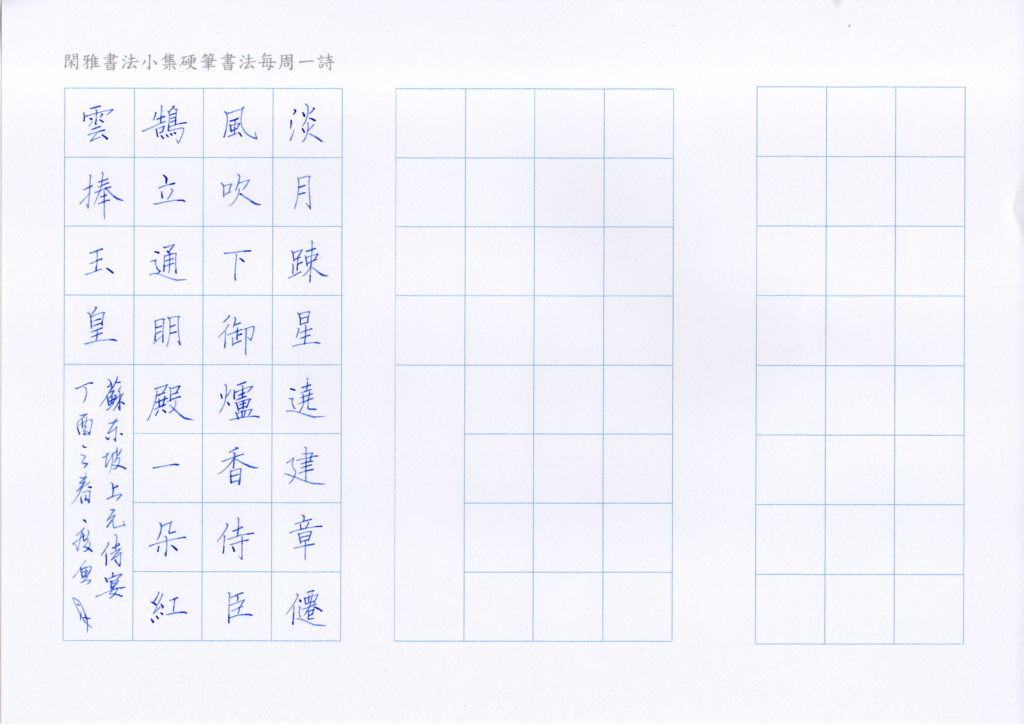 閑雅書法小集硬筆書法每周一詩
淡月踈星遶建章僊
風吹下御爐香侍臣
鵠立通明殿一朵紅
雲捧玉皇
蘇东坡上元侍宴
丁酉之春